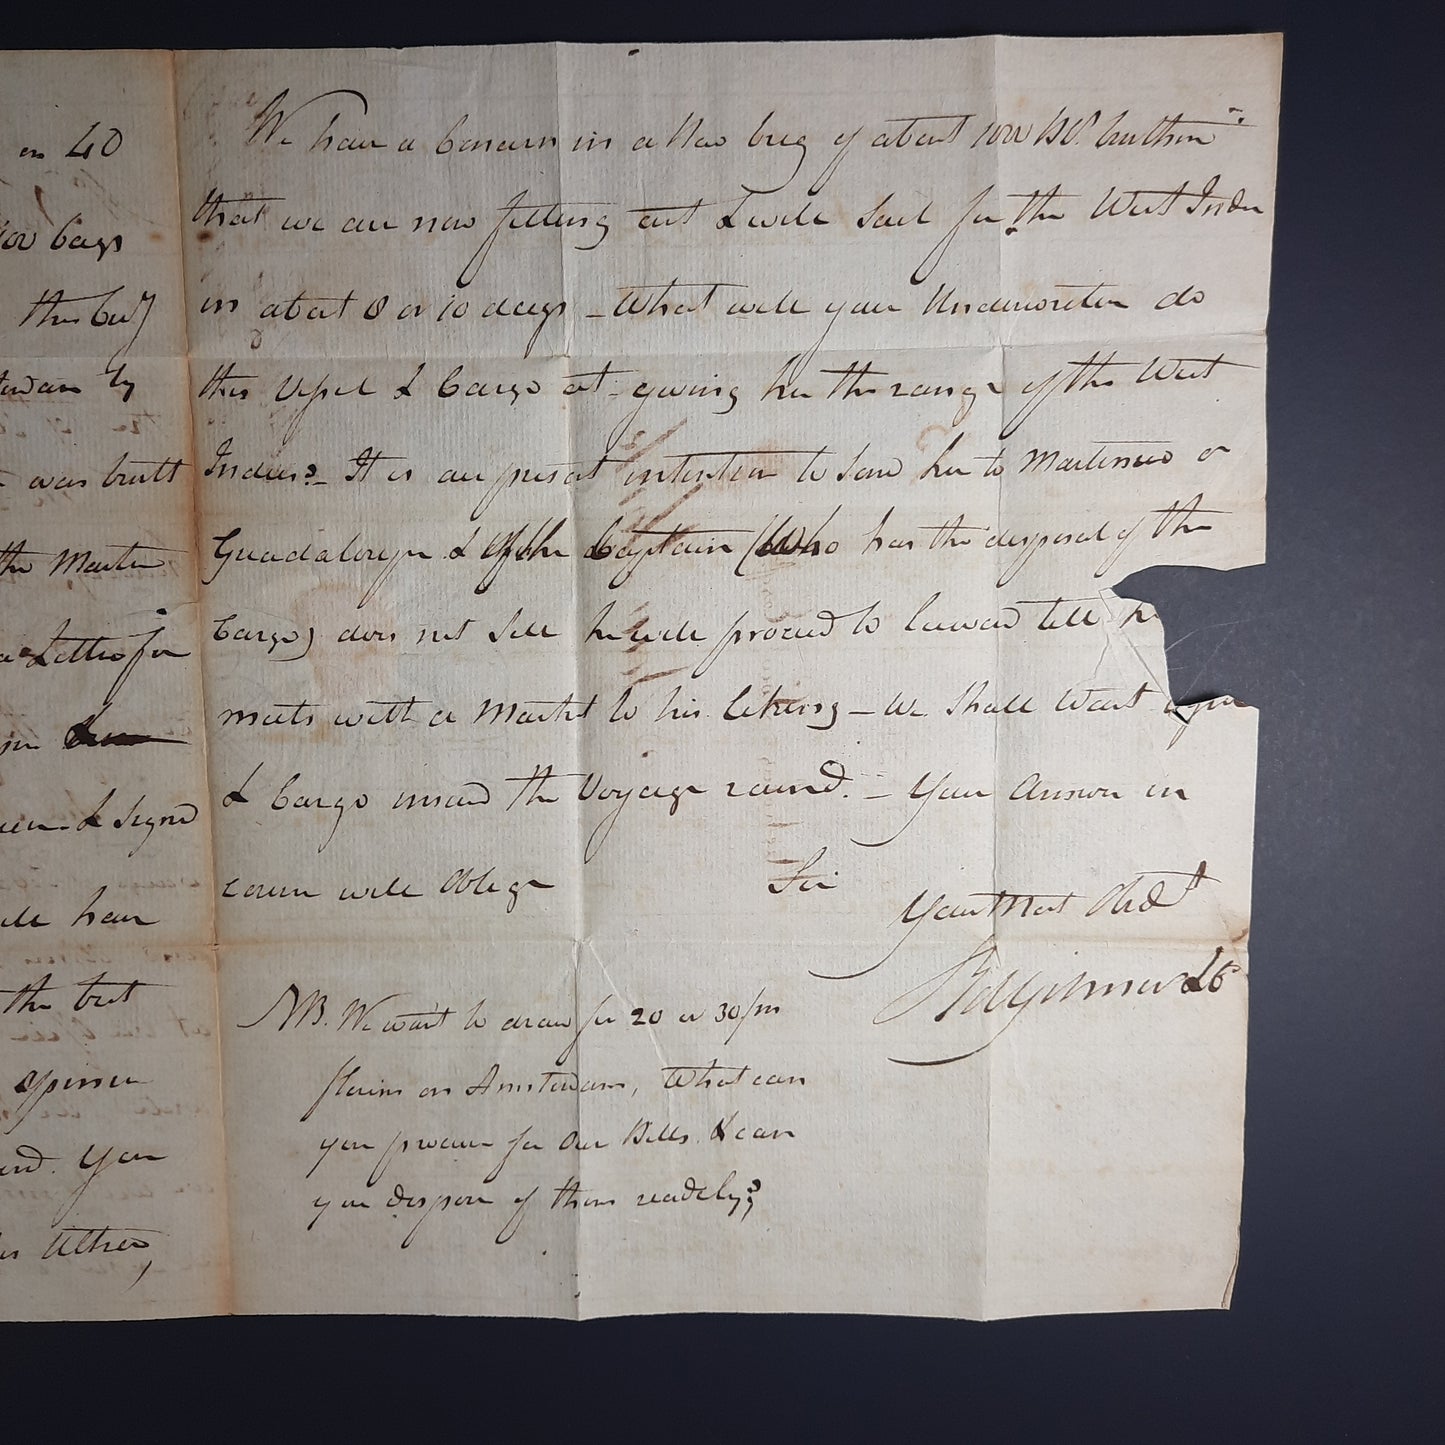 on 40
400 bags
this last
Amsterdam by
was built
the Master
a Letter for
& Signd
will have
the best
opinion
and. You
Other,
We have a Concern in a New brig of about 1000 Bls. burthen
that we are now fitting out & will Sail for the West Indies
in about 8 or 10 days – What will your Underwriters do
this Vessel & Cargo at – giving her the range of the West
Indies? – It is our present intention to send her to Martinico or
Guadaloupe & If the Captain (Who has the disposal of the
Cargo) does not Sell he will proceed to leeward till he
meets with a Market to his liking – We Shall Want
& Cargo insured the Voyage round. – Your Answer in
course will Oblige Sir
Your Most Obedt
Robt Gilmor & Co
NB. We want to draw for 20 or 30/m
florins on Amsterdam, What can
you procure for Our Bills & can
you dispose of them readily?